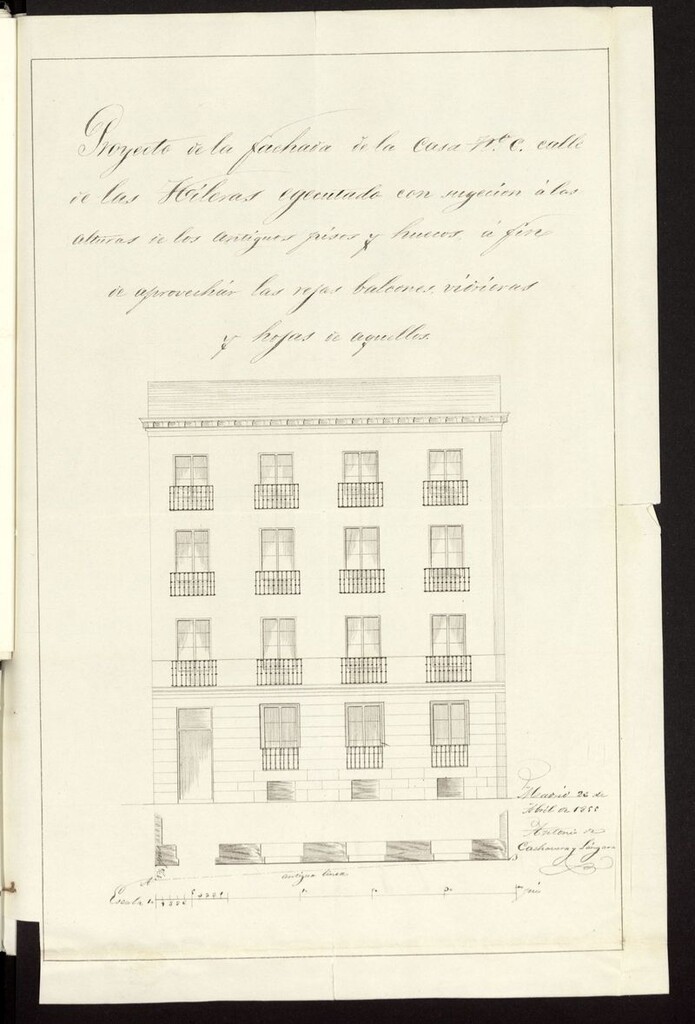 Proyecto de la fachada de la Casa Nº 6. calle
de las Hileras egecutado con sugecion à las
alturas de los antiguos pisos y huecos, à fin
de aprovechár las rejas balcones, vidrieras
y hojas de aquellos.
Madrid 26 de
Abril de 1855
Antonio de
Cachavera y Lángara
antigua linea
Escala
pies